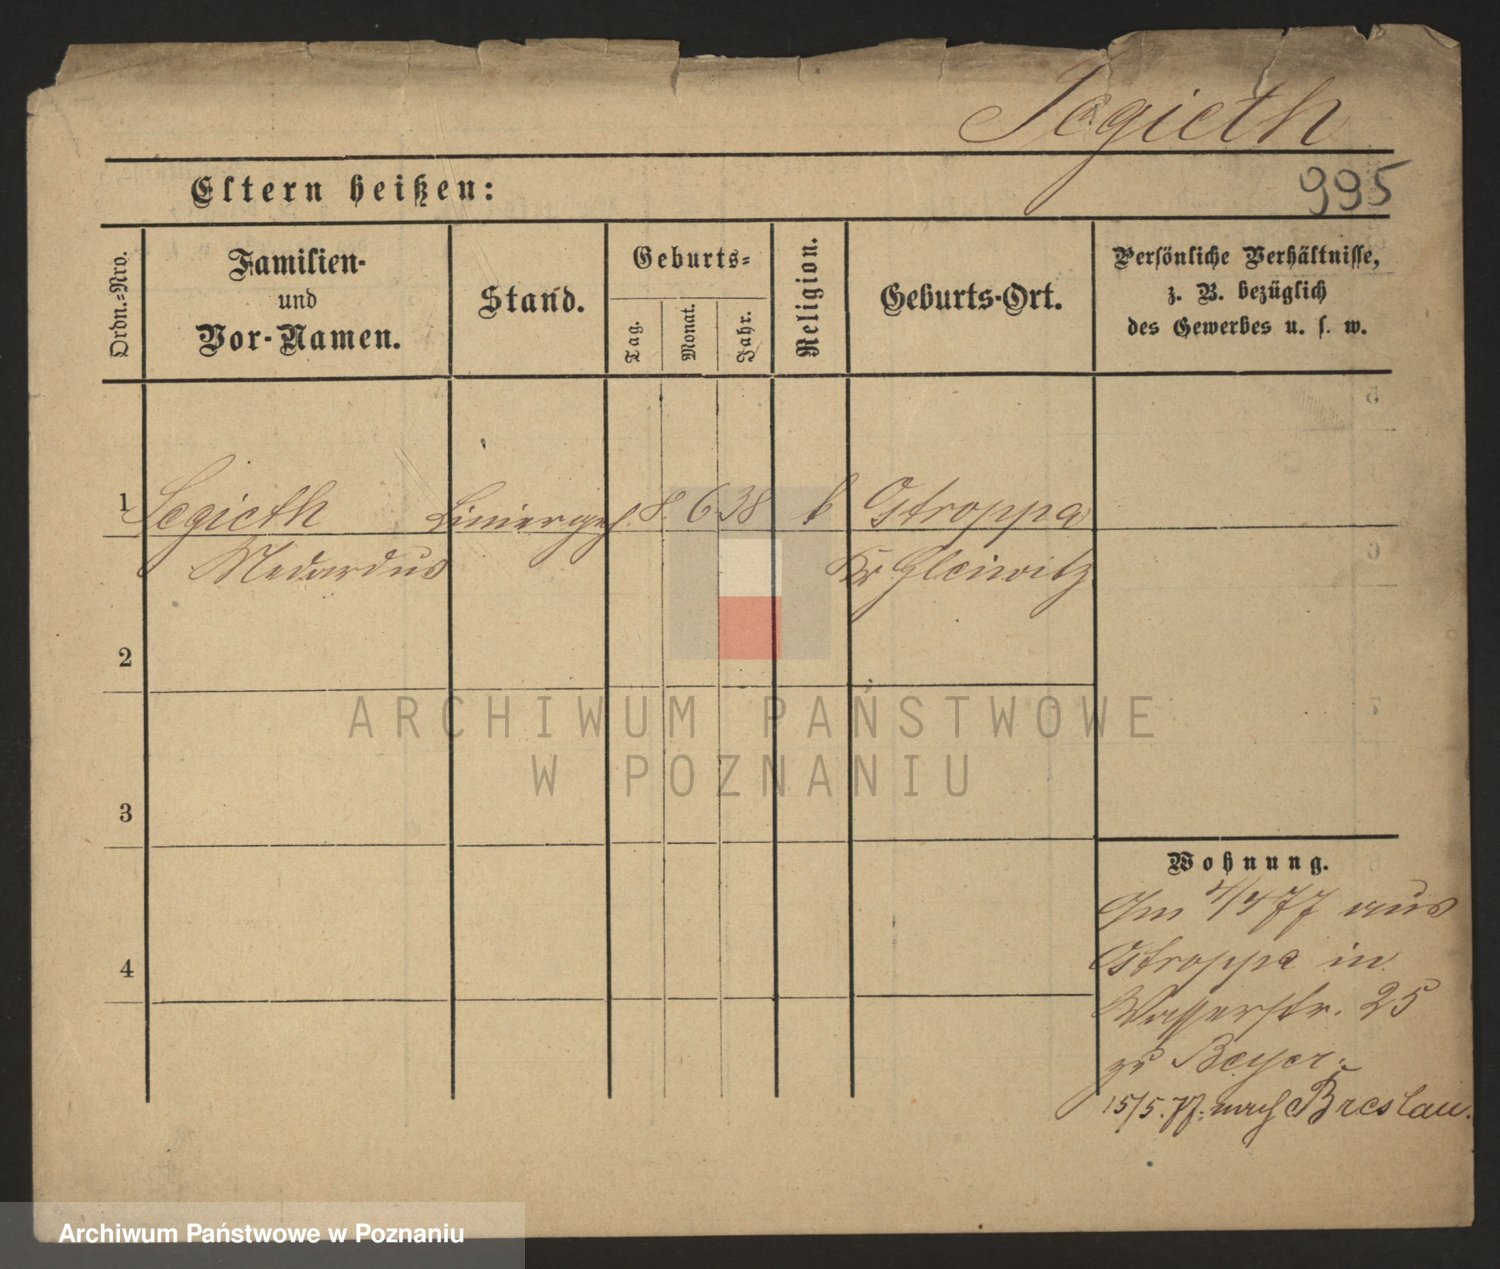 Segieth
Eltern heißen:
995
Ordn.=Nro.
Familien-
und
Vor-Namen.
Stand.
Geburts=
Tag.
Monat.
Jahr.
Religion.
Geburts-Ort.
Persönliche Verhältnisse,
z. B. bezüglich
des Gewerbes u. s. w.
1 Segieth 8 6 38 k Ostroppa
Medardus Kr Gleiwitz
2
3
4
Wohnung.
Am 4/4 77 aus
Ostroppa in
Wasserstr. 25
zu Beyer.
15/5. 77. nach Breslau.
ARCHIWUM PAŃSTWOWE
W POZNANIU
Archiwum Państwowe w Poznaniu